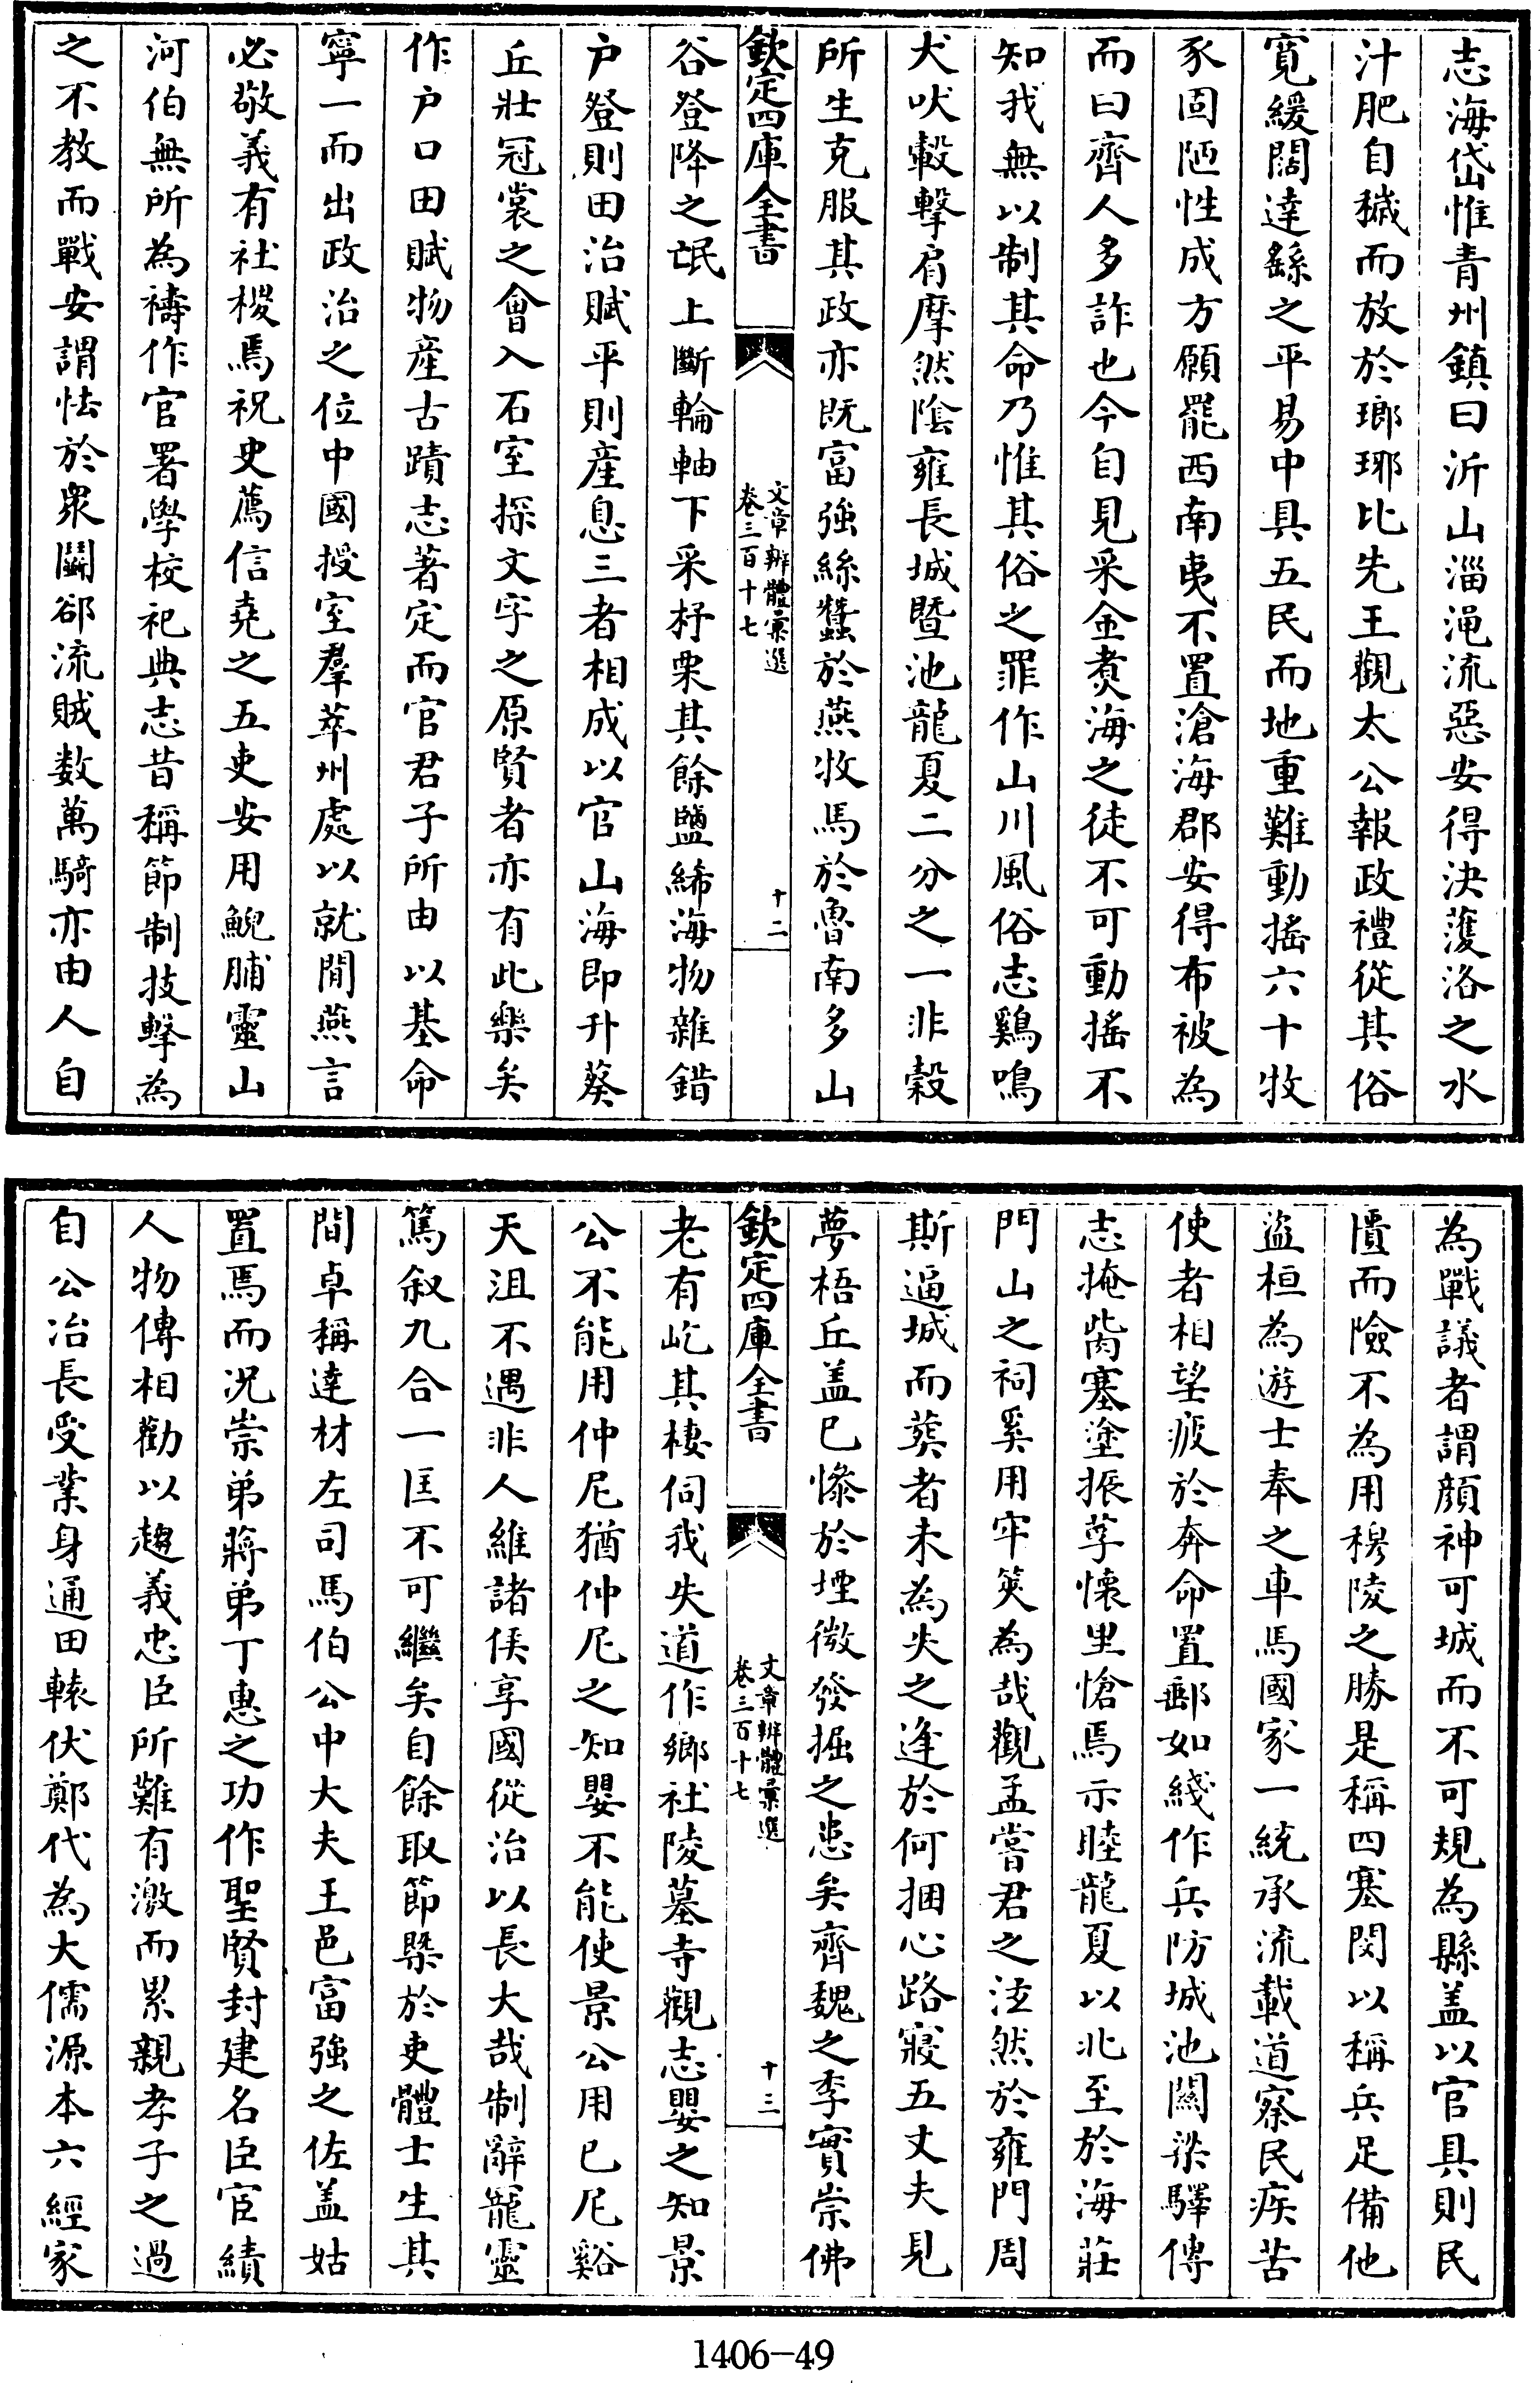 志海岱惟青州鎮曰沂山淄澠流惡安得決蒦洛之水
汁肥自穢而放於瑯琊比先王觀太公報政禮從其俗
寛緩闊達繇之平易中具五民而地重難動揺六十牧
豕固陋性成方願罷西南夷不置滄海郡安得布被為
而曰齊人多詐也今自見采金煑海之徒不可動揺不
知我無以制其命乃惟其俗之罪作山川風俗志鷄鳴
犬吠轂擊肩摩然陰雍長城暨池龍夏二分之一非穀
所生克服其政亦既富強絲蠶於燕牧馬於魯南多山
欽定四庫全書
文章辨體彙選
卷三百十七
十二
谷登降之氓上斷輪軸下采杼栗其餘鹽絺海物雜錯
户登則田治賦平則産息三者相成以官山海即升葵
丘壯冠裳之會入石室探文字之原賢者亦有此樂矣
作户口田賦物産古蹟志著定而官君子所由以基命
寧一而出政治之位中國授室羣萃州處以就閒燕言
必敬義有社稷焉祝史薦信堯之五吏安用鯢脯靈山
河伯無所為禱作官署學校祀典志昔稱節制技擊為
之不教而戰安謂怯於衆鬬郤流賊数萬騎亦由人自
為戰議者謂顔神可城而不可規為縣盖以官具則民
匱而險不為用穆陵之勝是稱四塞閔以稱兵足備他
盗桓為遊士奉之車馬國家一統承流載道察民疾苦
使者相望疲於奔命置郵如綫作兵防城池闗梁驛傳
志掩胔塞塗振莩懐里愴焉示睦龍夏以北至於海莊
門山之祠奚用牢筴為哉觀孟嘗君之泣然於雍門周
斯逼城而葬者未為失之逢於何捆心路寢五丈夫見
夢梧丘盖已慘於堙微發掘之患矣齊魏之季實崇佛
欽定四庫全書
文章辨體彙選
卷三百十七
十三
老有屹其棲伺我失道作鄉社陵墓寺觀志嬰之知景
公不能用仲尼猶仲尼之知嬰不能使景公用已尼谿
天沮不遇非人維諸侯享國從治以長大哉制辭寵靈
篤叙九合一匡不可繼矣自餘取節槩於吏體士生其
間卓稱達材左司馬伯公中大夫王邑富強之佐盖姑
置焉而况崇弟蔣弟丁惠之功作聖賢封建名臣宦績
人物傳相勸以趨義忠臣所難有激而累親孝子之過
自公冶長受業身通田轅伏鄭代為大儒源本六經家
1406-49